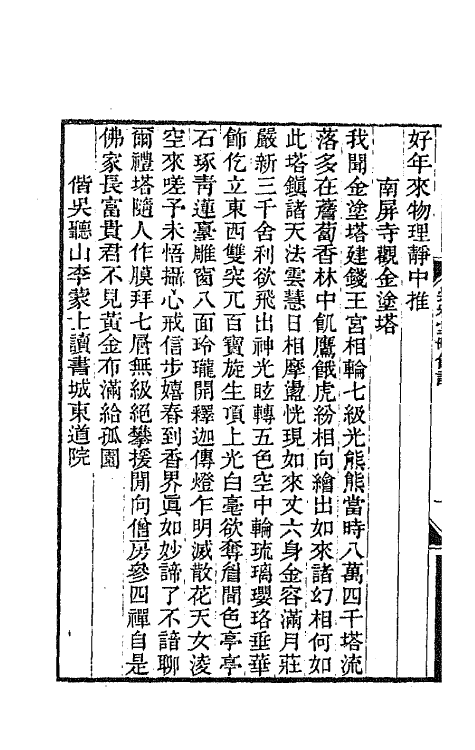 好年來物理靜中推
南屏寺觀金塗塔
我聞金塗塔建錢王宮相輪七級光熊熊當時八萬四千塔流
落多在薝蔔香林中飢鷹餓虎紛相向繪出如來諸幻相何如
此塔鎮諸天法雲慧日相摩盪恍現如來丈六身金容滿月莊
嚴新三千舍利欲飛出神光眩轉五色空中輪琉璃瓔珞垂華
飾仡立東西雙突兀百寶旋生頂上光白毫欲奪簷間色亭亭
石琢青蓮臺雕窗八面玲瓏開釋迦傳燈乍明滅散花天女淩
空來嗟予未悟攝心戒信步嬉春到香界眞如妙諦了不諳聊
爾禮塔隨人作膜拜七層無級絕攀援閒向僧房參四禪自是
佛家長富貴君不見黃金布滿給孤園
偕吳聽山李蒙士讀書城東道院